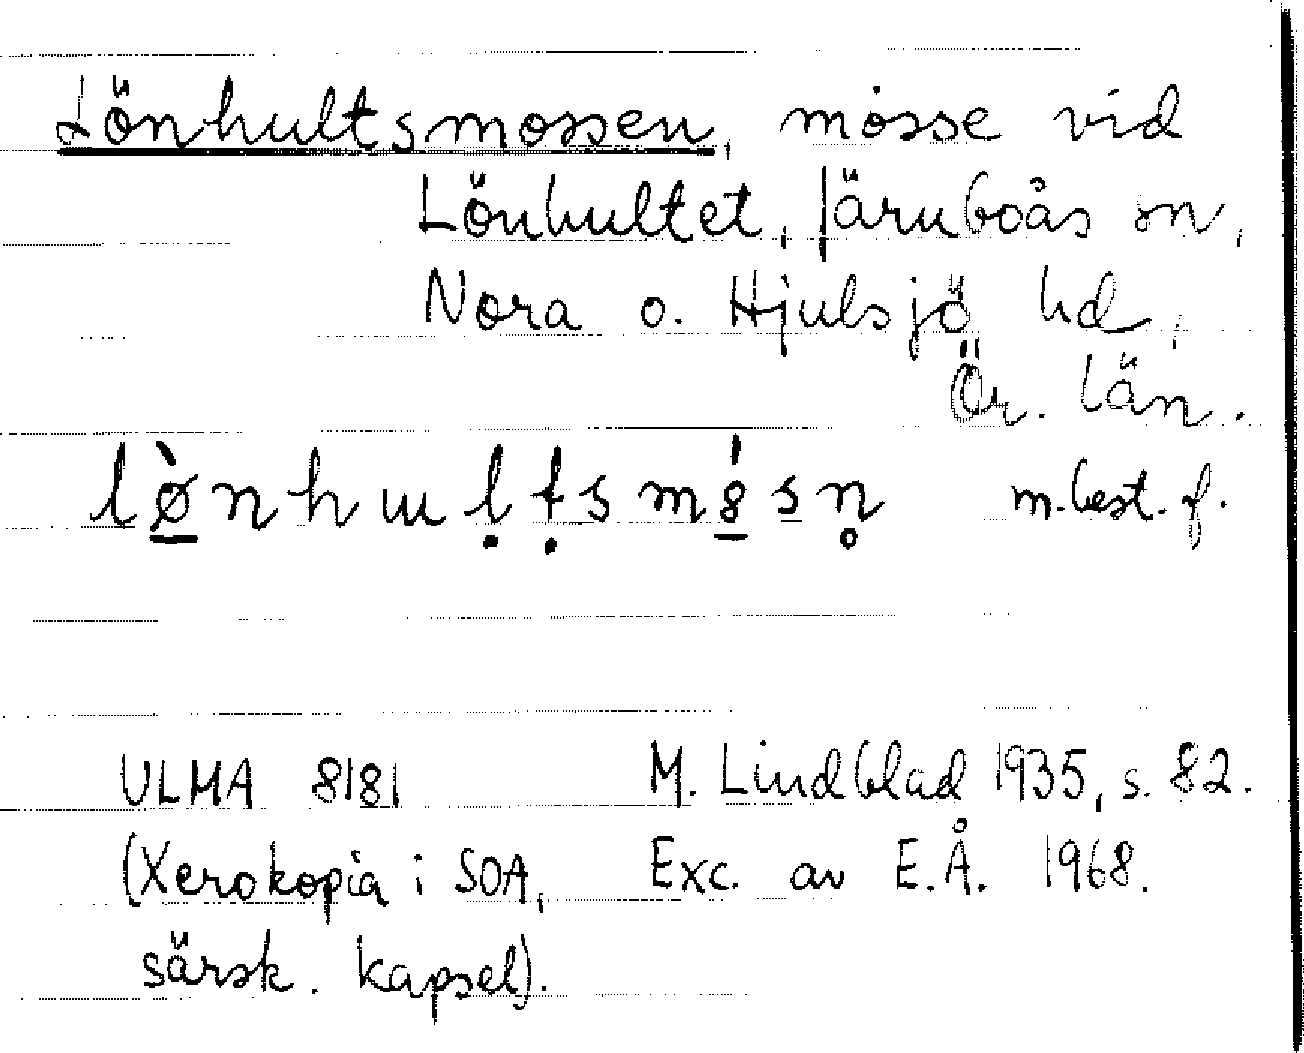 Lönhultsmossen, mosse vid
Lönhultet, Järnboås sn,
Nora o. Hjulsjö hd,
Ör. län.
lø̠̀nhɯḷṭsmȣ̠́s̠n̥ m. best. f.
ULMA 8181 M. Lindblad 1935, s. 82.
(Xerokopia i SOA, Exc. av E.Å. 1968.
särsk. kapsel).